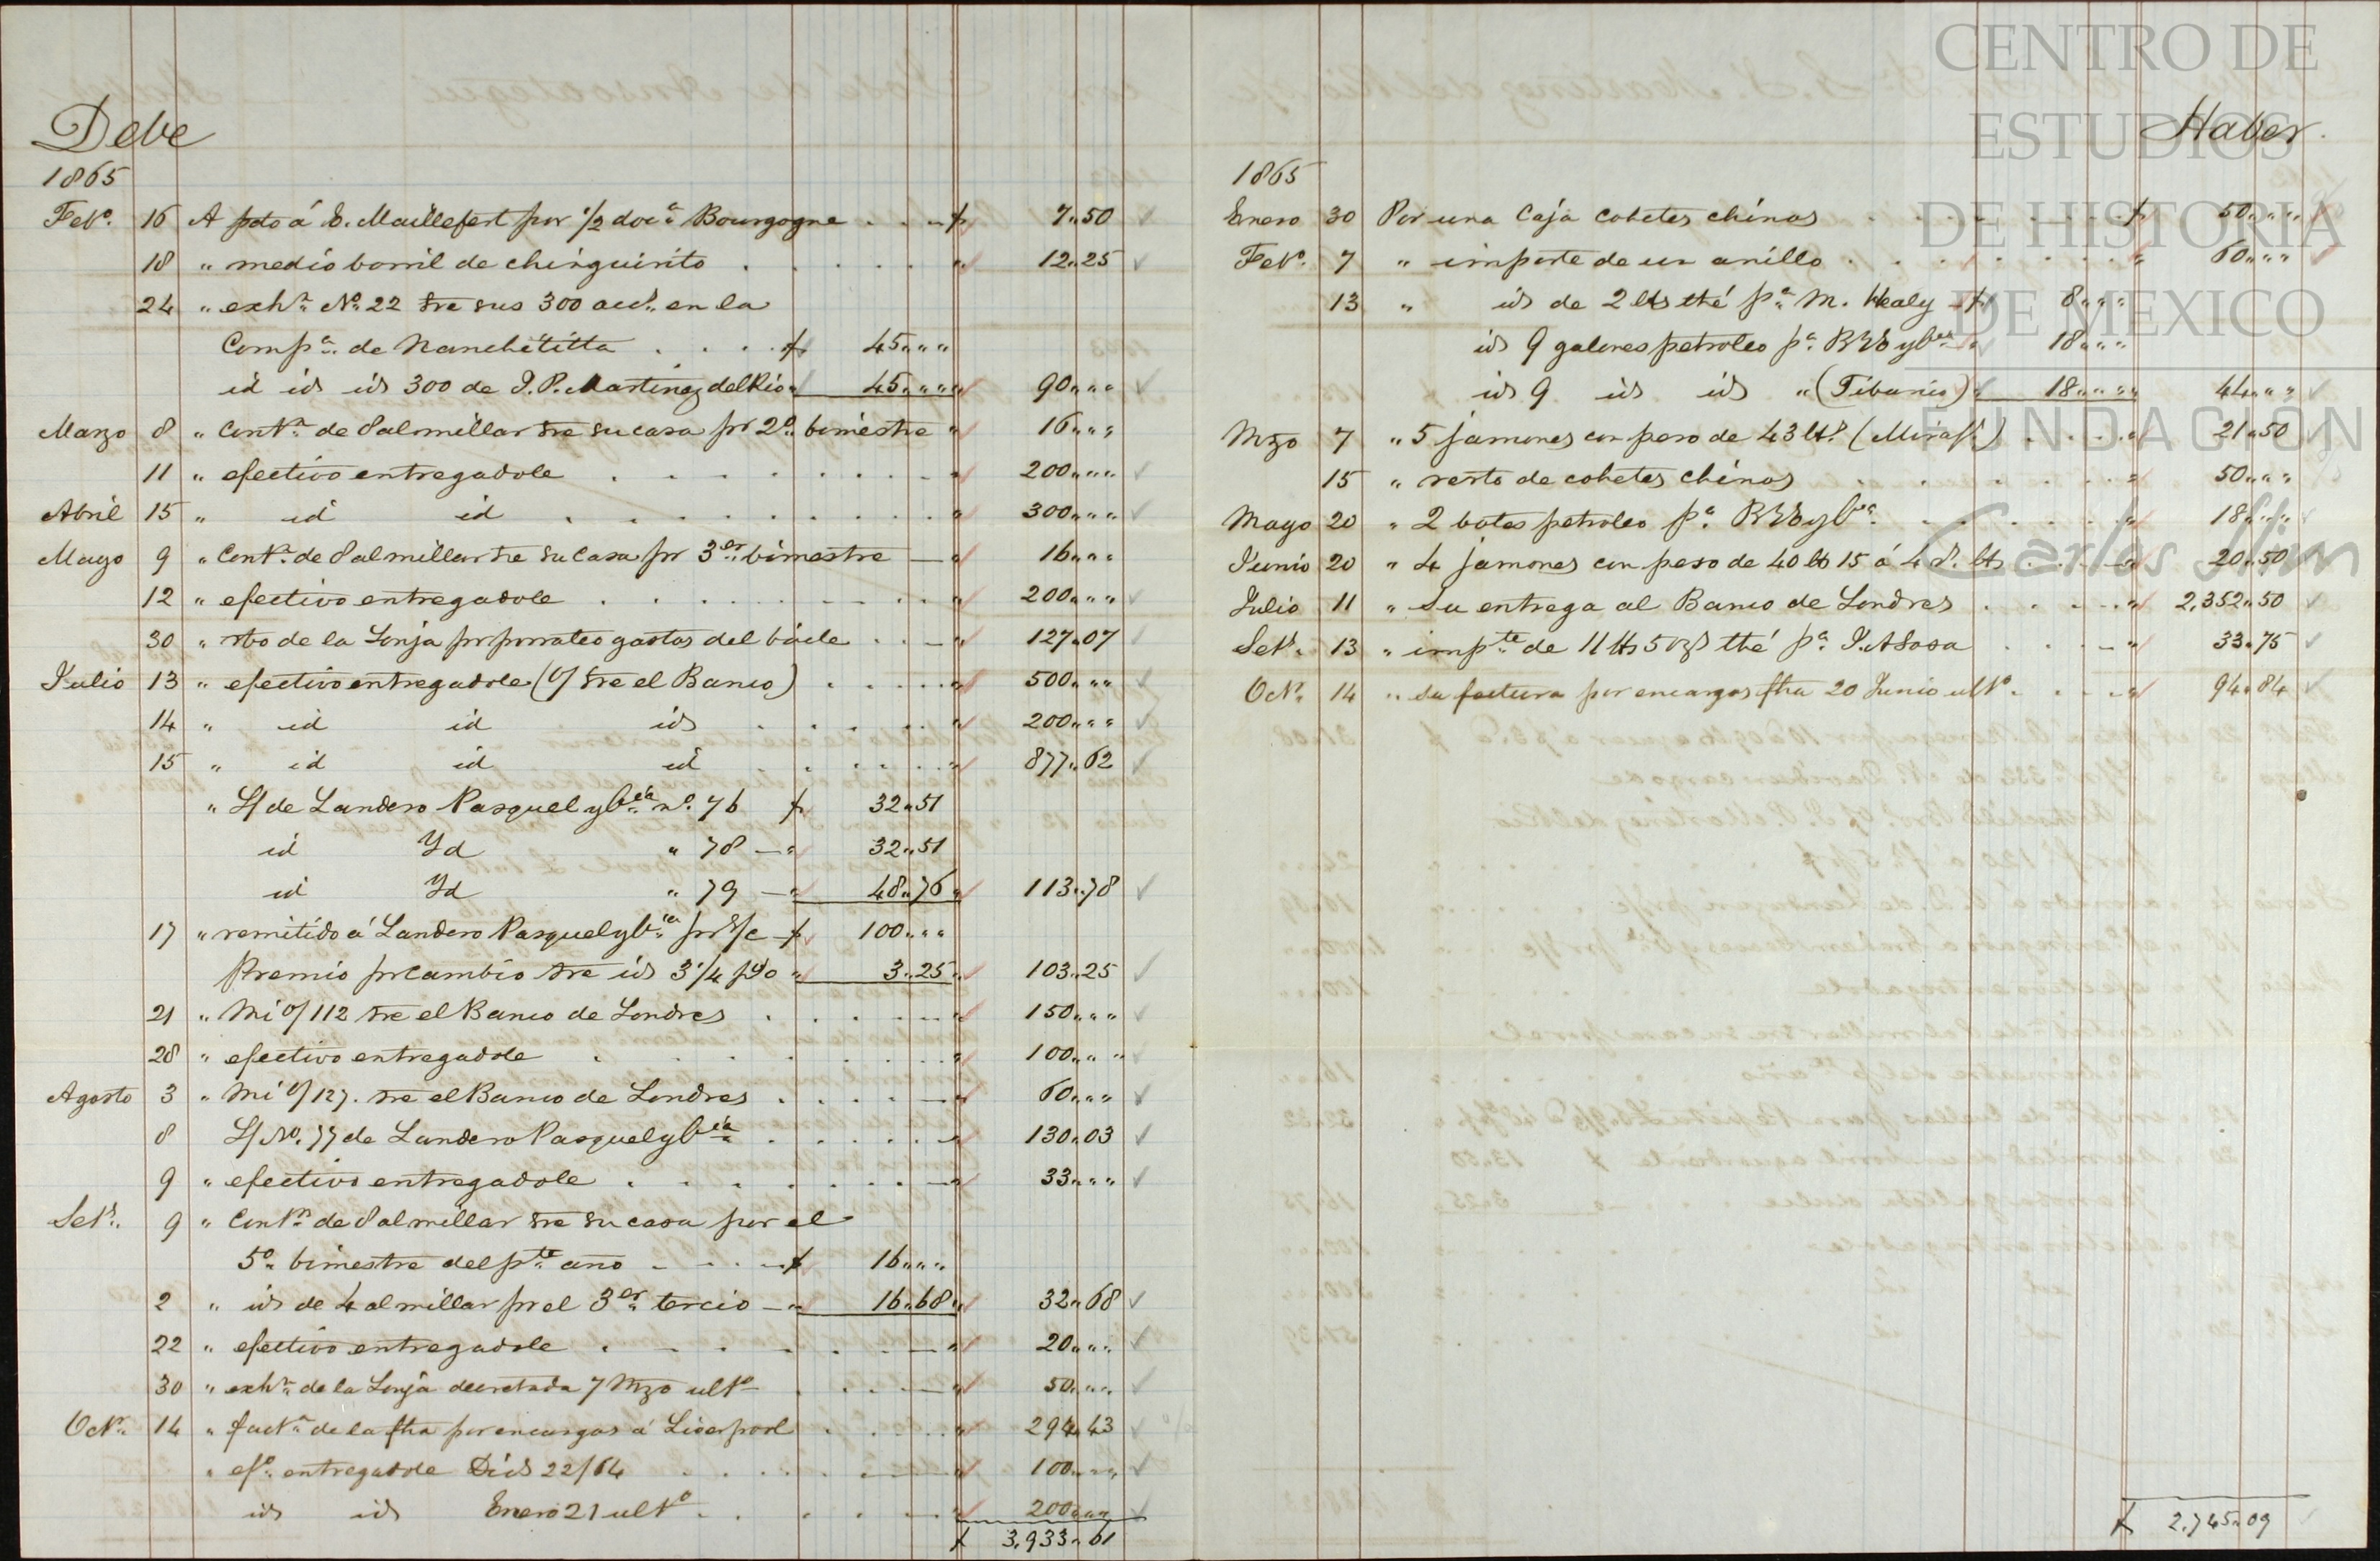 Debe
1865
Feb.º 16 A pdo á E. Maillefert por 1/2 doc.ª Bourgogne $ 7,,50
18 ,, medio barril de chinguirito ,, 12,,25
24 ,, exh.n Nº 22 sre sus 300 acc.s en la
Comp.ª de Nanchititla $ 45,,,,
id id id 300 de J. P. Martinez del Rio ,, 45,,,, ,, 90,,,,
Marzo 8 ,, Cont.n de 8 al millar sre su casa pr 2º bimestre ,, 16,,,,
11 ,, efectivo entregadole ,, 200,,,,
Abril 15 ,, id id ,, 300,,,,
Mayo 9 ,, Cont.n de 8 al millar sre su casa pr 3er bimestre ,, 16,,,,
12 ,, efectivo entregadole ,, 200,,,,
30 ,, rbo de la Lonja pr prorrateo gastos del baile ,, 127,,07
Julio 13 ,, efectivo entregadole (o/ sre el Banco) ,, 500,,,,
14 ,, id id id ,, 200,,,,
15 ,, id id id ,, 877,,62
,, L/ de Landero Pasquel y C.ia nº 76 $ 32,,51
id Yd ,, 78 ,, 32,,51
id Yd ,, 79 ,, 48,,76 ,, 113,,78
17 ,, remitido á Landero Pasquel y C.ia pr s/c $ 100,,,,
Premio pr cambio sre id 3 1/4 p% ,, 3,,25 ,, 103,,25
21 ,, Mi o/ 112 sre el Banco de Londres ,, 150,,,,
28 ,, efectivo entregadole ,, 100,,,,
Agosto 3 ,, Mi o/ 127. sre el Banco de Londres ,, 60,,,,
8 L/ Nº. 77 de Landero Pasquel y C.ia ,, 130,,03
9 ,, efectivo entregadole ,, 33,,,,
Set.e 9 ,, Cont.n de 8 al millar sre su casa por el
5º bimestre del pte año $ 16,,,,
2 ,, id de 4 al millar pr el 3er tercio ,, 16,,68 ,, 32,,68
22 ,, efectivo entregadole ,, 20,,,,
30 ,, exh.n de la Lonja decretada 7 Mzo ult.º ,, 50,,,,
Oct.e 14 ,, fact.ª de la fha por encargos á Liverpool ,, 294,,43
,, ef.º entregadole Dic 22/64 ,, 100,,,,
id id Enero 21 ult.º ,, 200,,,,
$ 3,933,,61
Haber.
1865
Enero 30 Por una Caja cohetes chinos $ 50,,,,
Feb.º 7 ,, importe de un anillo ,, 60,,,,
13 ,, id de 2 lbs thé p.ª M. Healy $ 8,,,,
id 9 galones petroleo p.ª
id 9 id id ,, (Tiburcio) ,, 18,,,, ,, 44,,,,
Mzo 7 ,, 5 jamones con peso de 43 lbs ,, 21,,50
15 ,, resto de cohetes chinos ,, 50,,,,
Mayo 20 ,, 2 botes petroleo p.ª ,, 18,,,,
Junio 20 ,, 4 jamones con peso de 40 lb 15 á 4 r. lb ,, 20,,50
Julio 11 ,, su entrega al Banco de Londres ,, 2,352,,50
Set.e 13 ,, imp.te de 11 lbs 5 oz thé p.ª J. A Sosa ,, 33,,75
Oct.e 14 ,, su factura por encargos fha 20 Junio ult.º ,, 94,,84
$ 2,745,,09
CENTRO DE
ESTUDIOS
DE HISTORIA
DE MEXICO
FUNDACION
Carlos Slim